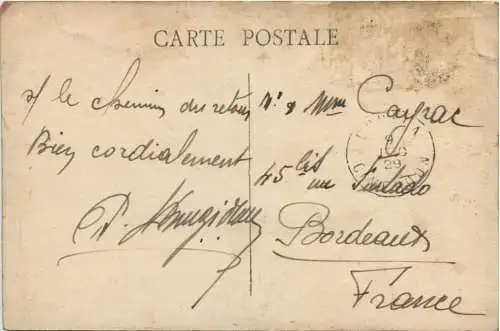 CARTE POSTALE
s/ le chemin du retour
Bien cordialement
Mr & Mme Cayrac
45 bis rue
Bordeaux
France
29